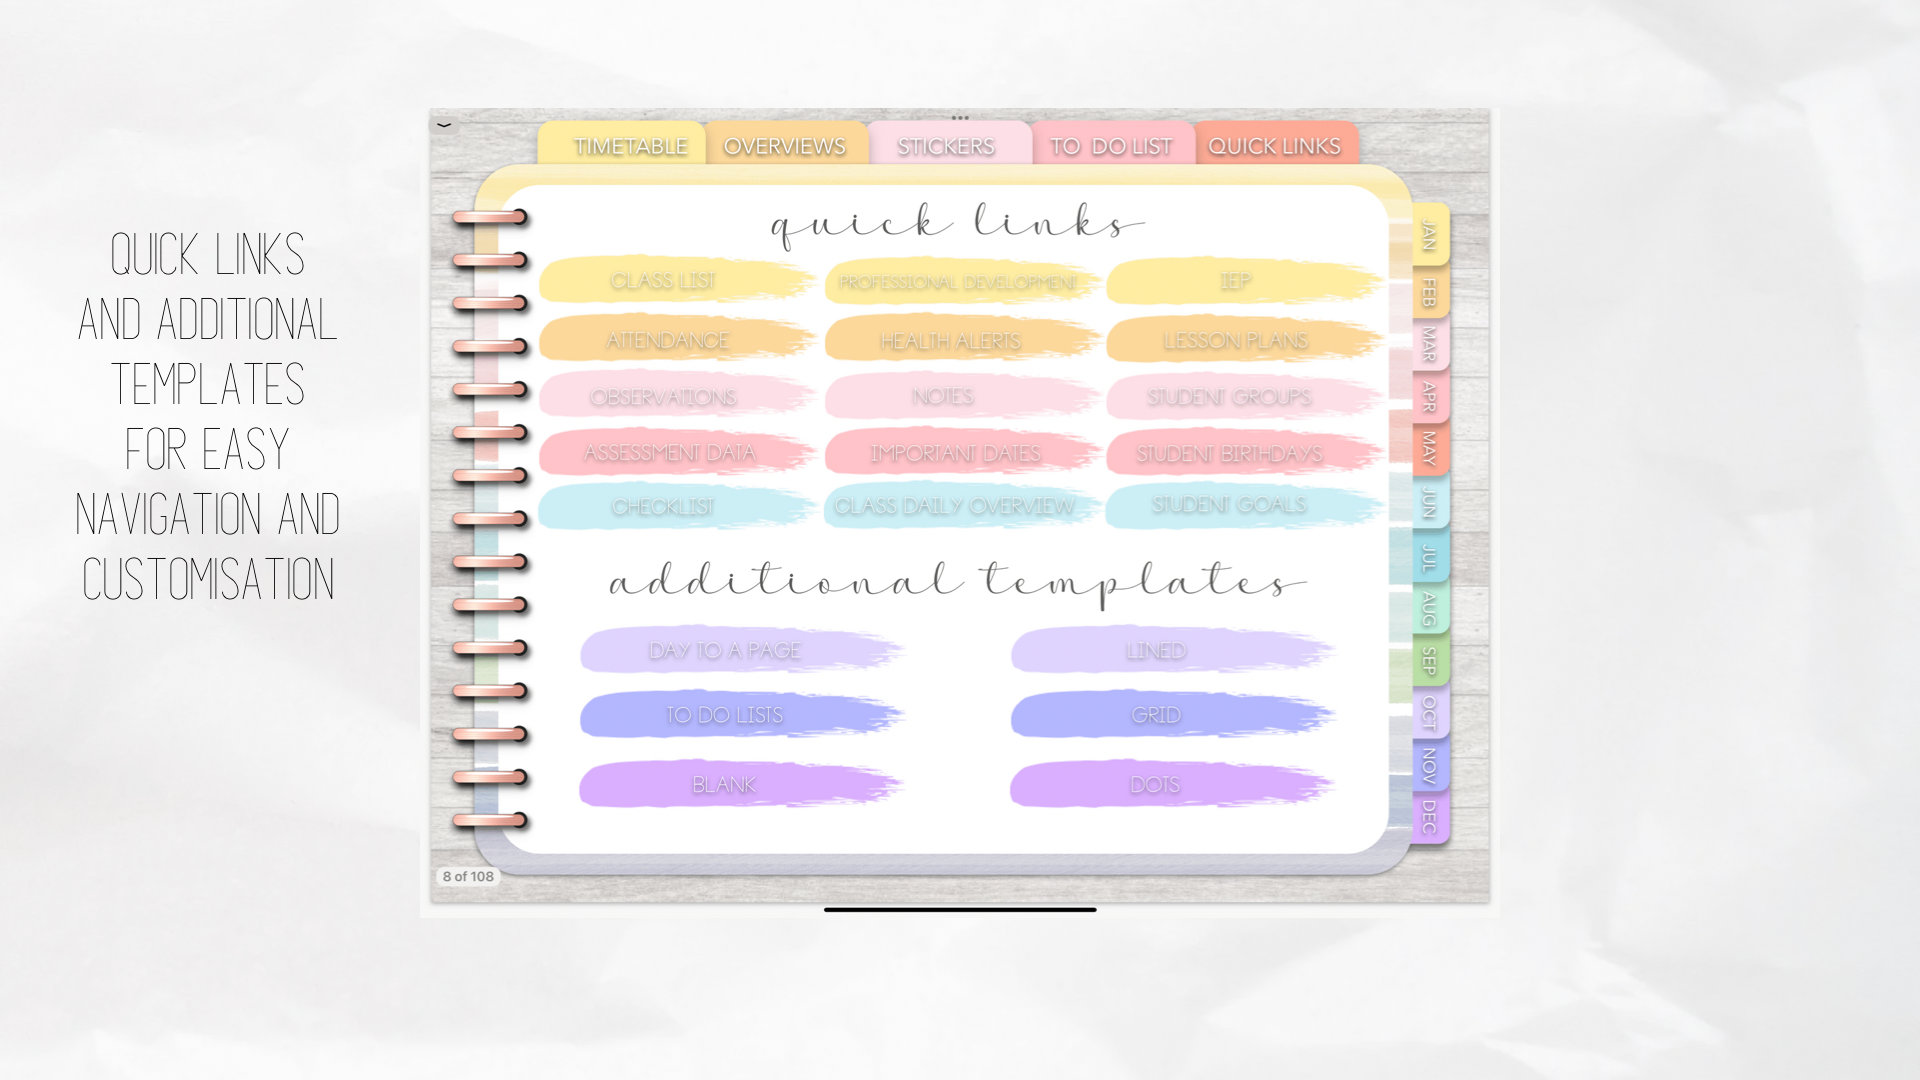 QUICK LINKS
AND ADDITIONAL
TEMPLATES
FOR EASY
NAVIGATION AND
CUSTOMISATION
TIMETABLE OVERVIEWS STICKERS TO DO LIST QUICK LINKS
quick links
CLASS LIST PROFESSIONAL DEVELOPMENT IEP
ATTENDANCE HEALTH ALERTS LESSON PLANS
OBSERVATIONS NOTES STUDENT GROUPS
ASSESSMENT DATA IMPORTANT DATES STUDENT BIRTHDAYS
CHECKLIST CLASS DAILY OVERVIEW STUDENT GOALS
additional templates
DAY TO A PAGE LINED
TO DO LISTS GRID
BLANK DOTS
JAN
FEB
MAR
APR
MAY
JUN
JUL
AUG
SEP
OCT
NOV
DEC
8 of 108